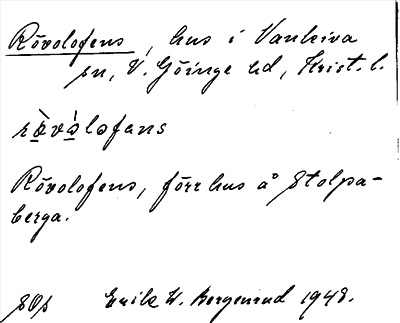 Rövolofens, hus i Vankiva
sn, V. Göinge hd, Krist. l.
rövolofans
Rövolofens, förr hus å Stolpa-
berga.
sOs Erik W. Bergenrud 1948.